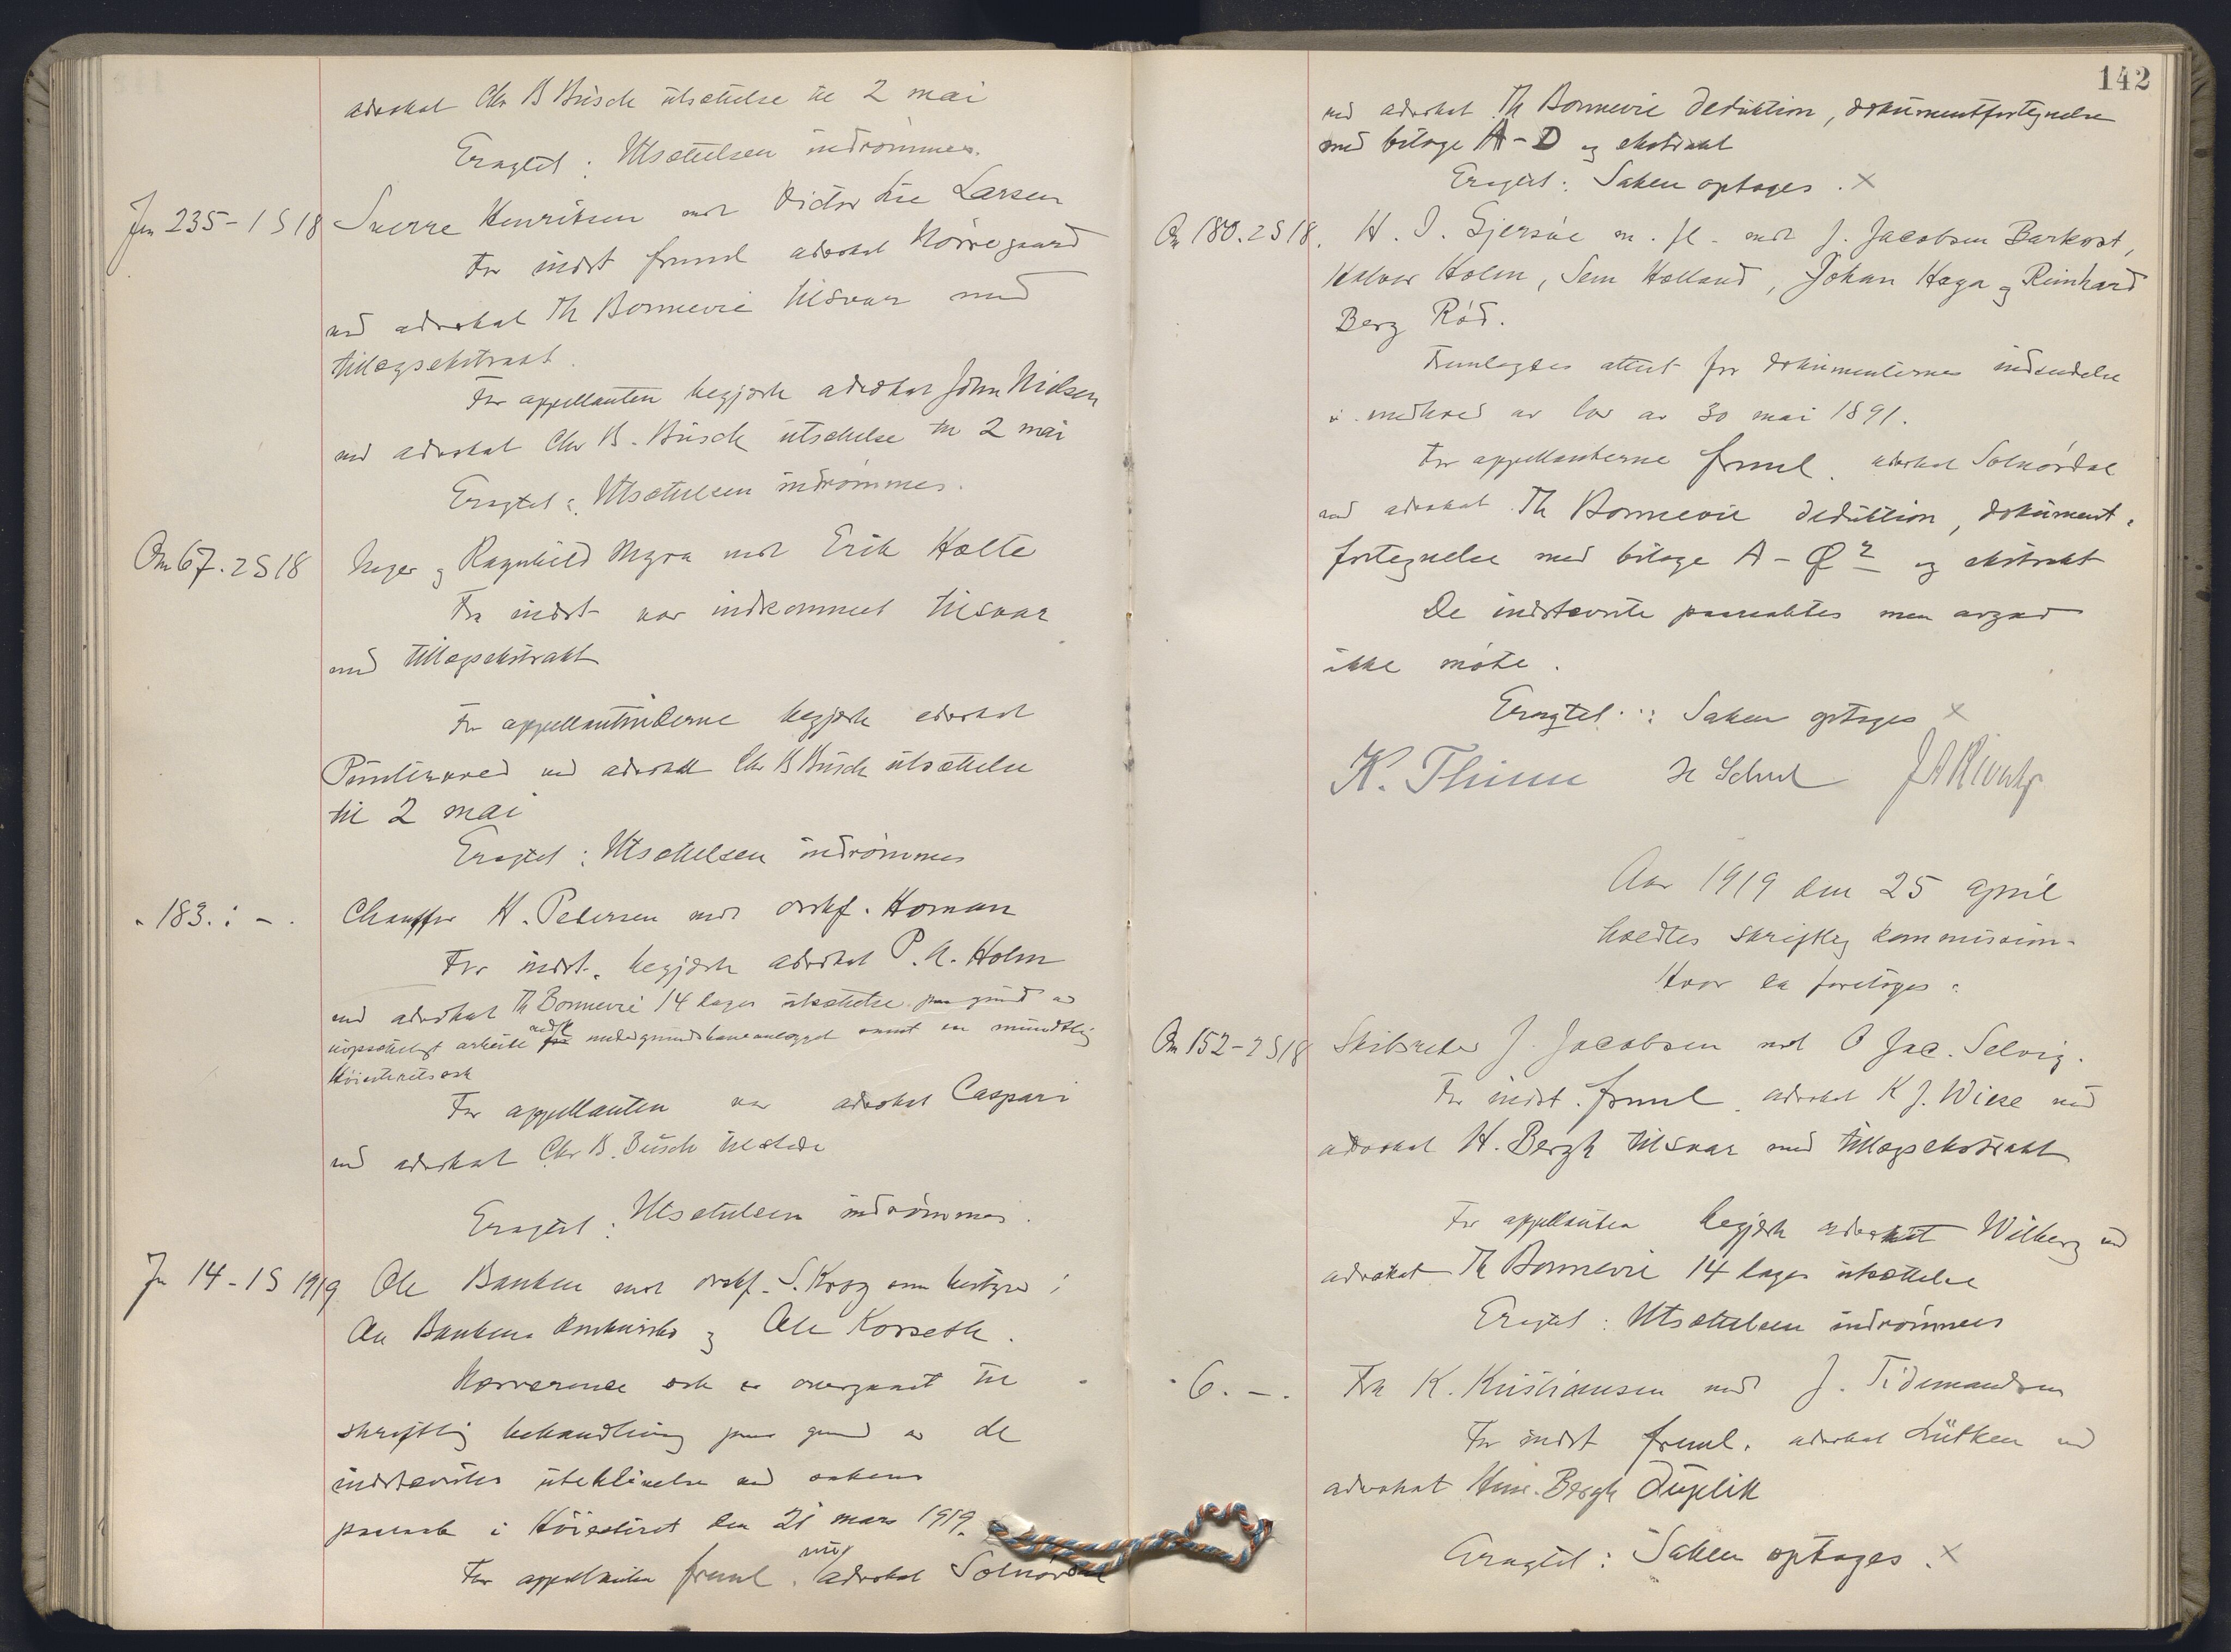 advokat Chr B Busch utsættelse til 2 mai
Eragtet: Utsættelsen indrømmes.
Jm 235-1 S 18 Sverre Henriksen mot Victor Lie Larsen
For indst freml advokat Nørregaard
ved advokat Th Bonnevie tilsvar med
tillægsekstrakt.
For appellanten begjærte advokat John Nielsen
ved advokat Chr B. Busch utsættelse til 2 mai
Eragtet: Utsættelsen indrømmes.
Om 67. 2 S 18 Inger og Ragnhild Myra mot Erik Holte
For indst var indkommet tilsvar
med tillægsekstrakt
For appellantinderne begjærte advokat
ved advokat Chr B Busch utsættelse
til 2 mai
Eragtet: Utsættelsen indrømmes
" 183. : - . Chauffør H. Petersen mot orskf. Homan
For indst. begjærte advokat P. A. Holm
ved advokat Th Bonnevie 14 dages utsættelse paa grund av
uopsætteligt arbeide for vedk undergrundsbaneanlægget samt en mundtlig
Høiesteretssak
For appellanten var advokat Caspari
ved advokat Chr B. Busch tilstede
Eragtet: Utsættelsen indrømmes.
Jm 14-1 S 1919 Ole Banken mot orskf. S. Krog som bestyrer i
Ole Bankens konkursbo og Ole Korseth.
Nærværende sak er overgaaet til
skriftlig behandling paa grund av de
indstevntes uteblivelse ved sakens
paarop i Høiesteret den 21 mars 1919.
For appellanten freml. nu advokat Solnørdal
142
ved advokat Th Bonnevie deduktion, dokumentfortegnelse
med bilage A-D og ekstrakt
Eragtet: Saken optages. X
Om 180. 2 S 18. H. I. Gjersøe m. fl. mot J. Jacobsen Barkost,
Halvor Holm, Sem Holland, Johan Haga og Reinhard
Berg Rød.
Fremlagdes attest for dokumenternes indsendelse
i medhold av lov av 30 mai 1891.
For appellanterne freml. advokat Solnørdal
ved advokat Th Bonnevie deduktion, dokument-
fortegnelse med bilage A - Ø 2 og ekstrakt
De indstevnte paaroptes men avgav
ikke møte.
Eragtet: Saken optages X
K. Thinn
Aar 1919 den 25 april
holdtes skriftlig kommission-
Hvor da foretoges:
Om 152-2 S 18 Skibsreder J. Jacobsen mot O Jac. Selvig.
For indst. freml. advokat K J. Wiese ved
advokat H. Bergh tilsvar med tillægsekstrakt
For appellanten begjærte advokat Wilberg ved
advokat Th Bonnevie 14 dages utsættelse
Eragtet: Utsættelsen indrømmes
" 6. - . Fru K. Kristiansen mot J. Tidemandsen
For indst freml. advokat Lütken ved
advokat Hme. Bergh Duplik
Eragtet: Saken optages. X